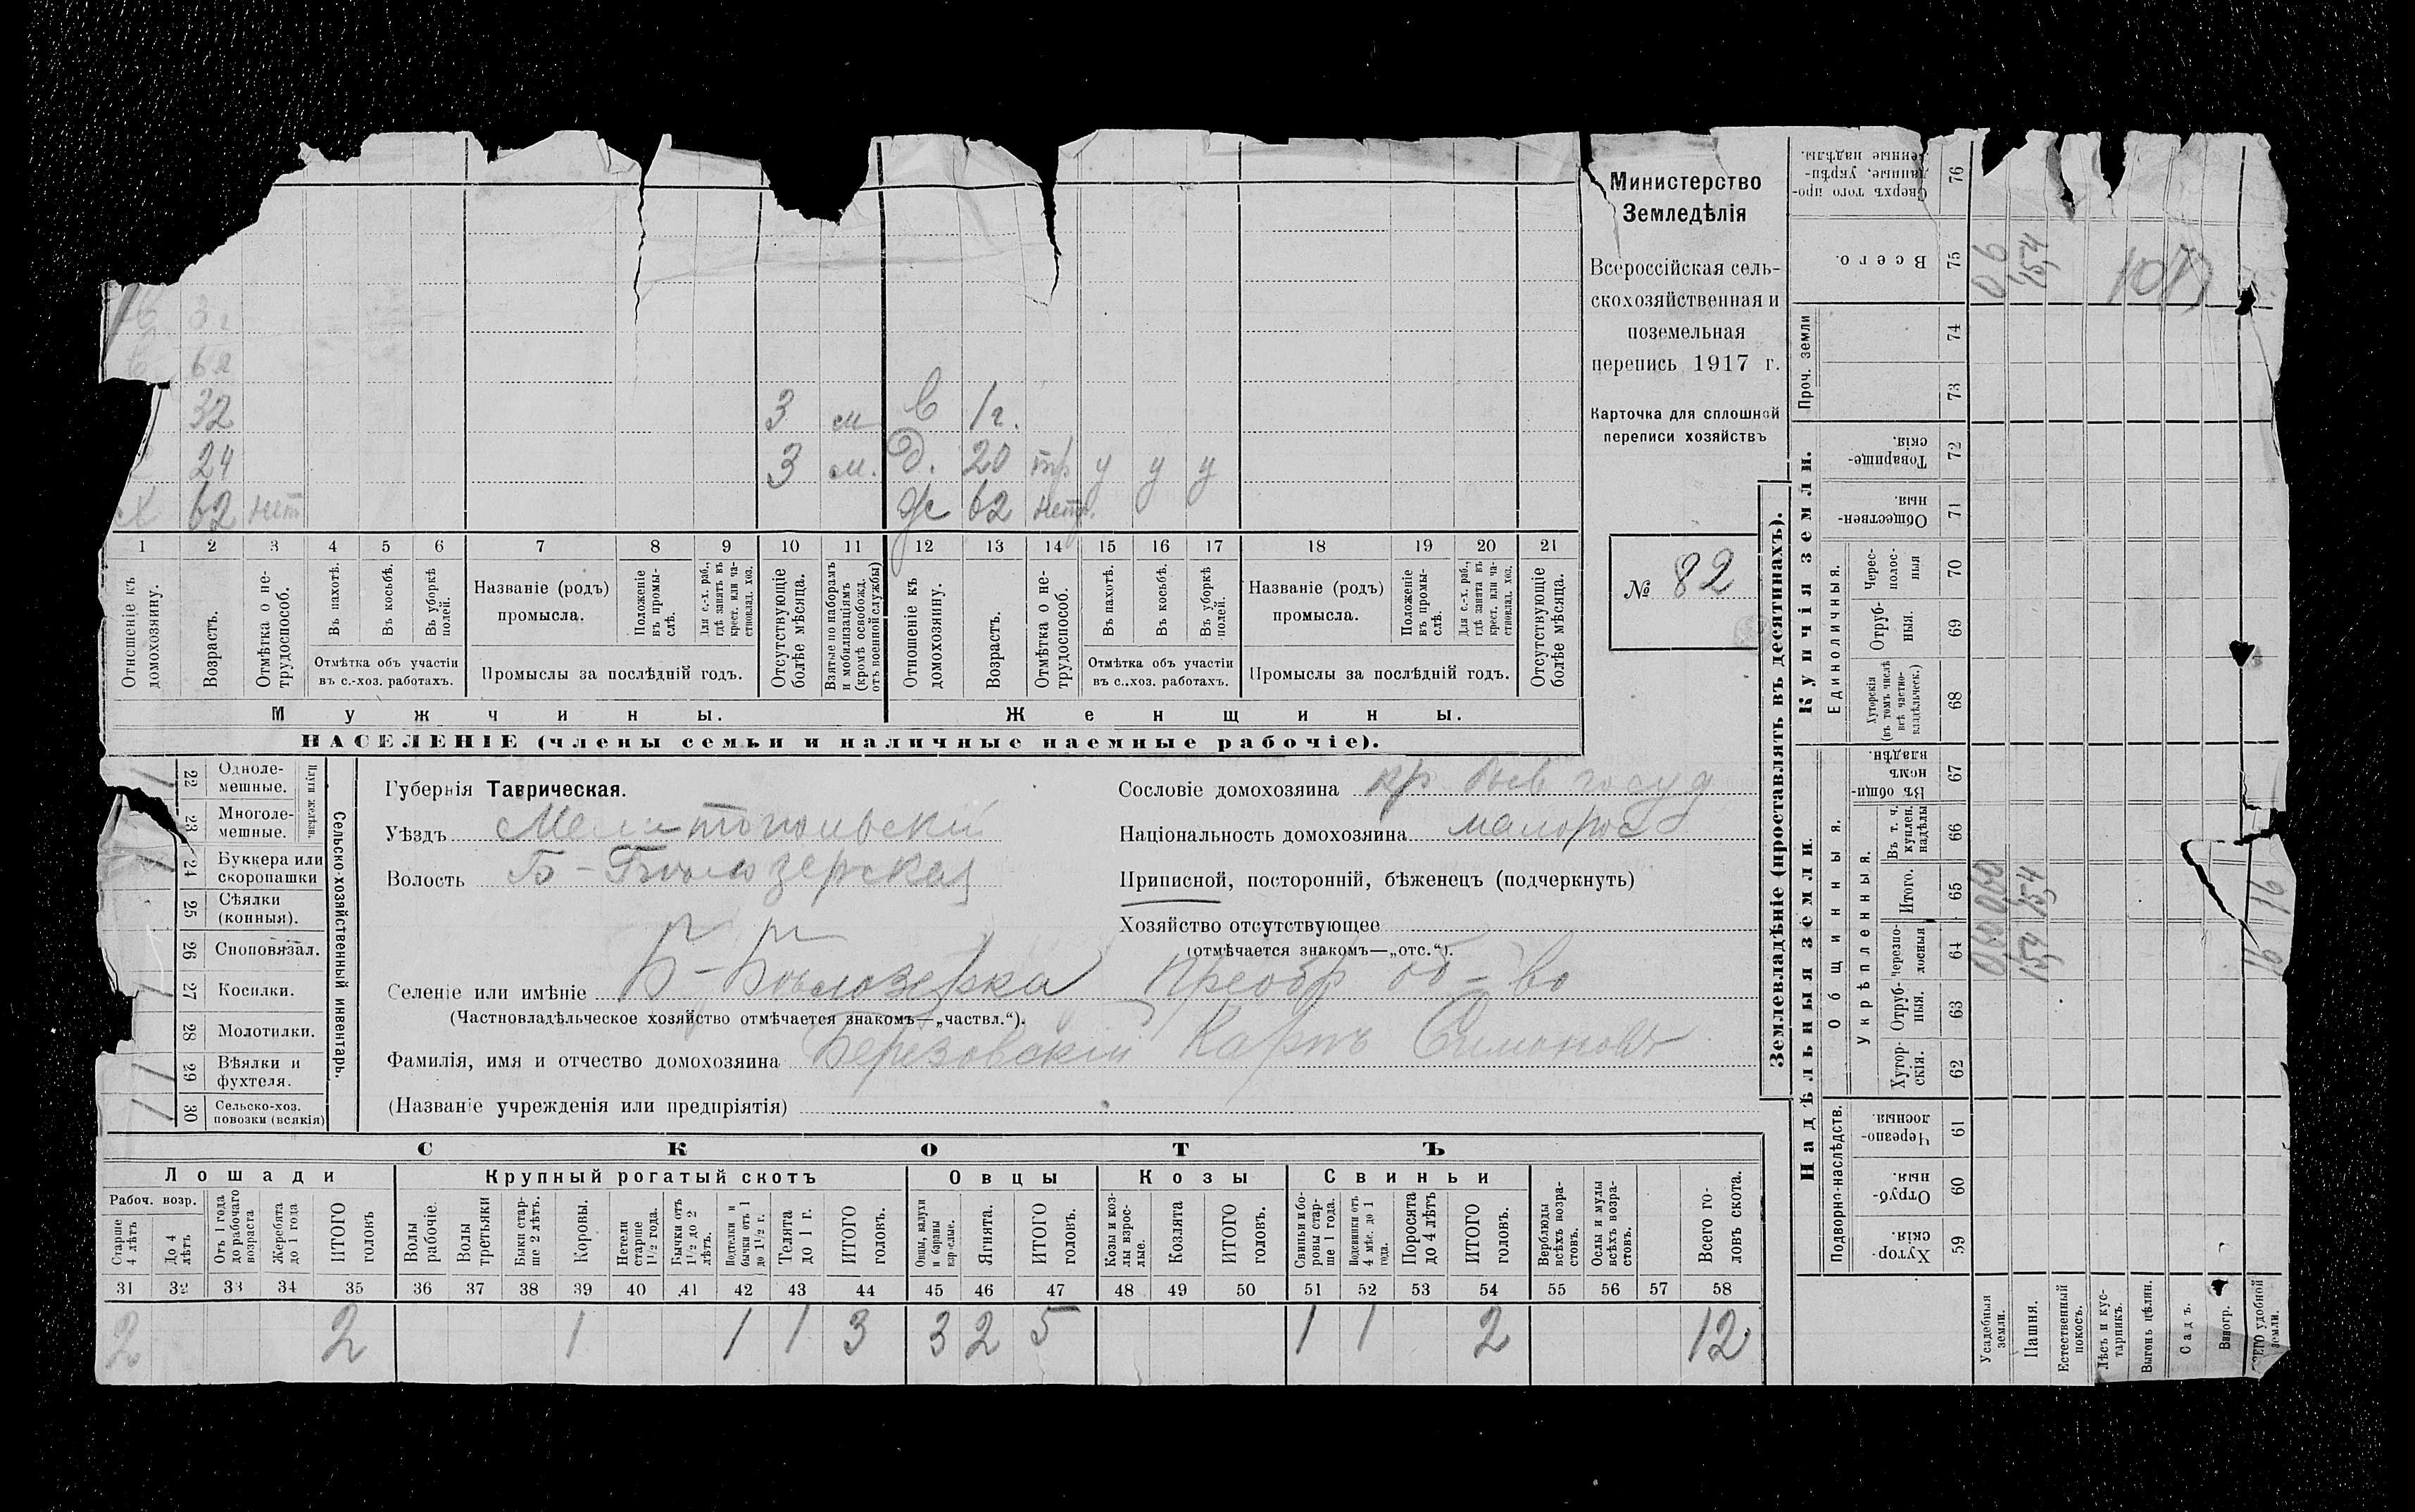 Министерство
Земледѣлія
Всероссійская сель-
скохозяйственная и
поземельная
перепись 1917 г.
Карточка для сплошной
переписи хозяйствъ
№ 82
3 г
6 л
32 3 м в 1 г.
24 3 м. д. 20 тр у у у
62 нет ж 62 нетр.
1 2 3 4 5 6 7 8 9 10 11 12 13 14 15 16 17 18 19 20 21
Отношеніе къ домохозяину.
Возрастъ.
Отмѣтка о не-трудоспособ.
Въ пахотѣ.
Въ косьбѣ.
Въ уборкѣ полей.
Отмѣтка объ участіи
въ с.-хоз. работахъ.
Названіе (родъ)
промысла.
Положеніе въ промы-слѣ.
Для с.-х. раб., гдѣ занятъ въ крест. или ча-стновлад. хоз.
Промыслы за послѣдній годъ.
Отсутствующіе болѣе мѣсяца.
Взятые по наборамъ и мобилизаціямъ (кромѣ освобожд. отъ военной службы)
Отношеніе къ домохозяину.
Возрастъ.
Отмѣтка о не-трудоспособ.
Въ пахотѣ.
Въ косьбѣ.
Въ уборкѣ полей.
Отмѣтка объ участіи
въ с.-хоз. работахъ.
Названіе (родъ)
промысла.
Положеніе въ промы-слѣ.
Для с.-х. раб., гдѣ занята въ крест. или ча-стновлад. хоз.
Промыслы за послѣдній годъ.
Отсутствующіе болѣе мѣсяца.
Мужчины. Женщины.
НАСЕЛЕНІЕ (члены семьи и наличные наемные рабочіе).
22 Одноле-мешные.
23 Многоле-мешные.
24 Буккера или скоропашки
25 Сѣялки (конныя).
26 Сноповязал.
27 Косилки.
28 Молотилки.
29 Вѣялки и фухтеля.
30 Сельско-хоз. повозки (всякія)
Сельско-хозяйственный инвентарь.
Губернія Таврическая.
Уѣздъ Мелитопольскій
Волость Б-Бѣлозерская
Селеніе или имѣніе Б-Бѣлозерка Преобр об-во
(Частновладѣльческое хозяйство отмѣчается знакомъ—„частвл.“).
Фамилія, имя и отчество домохозяина Березовскій Карпъ Симоновъ
(Названіе учрежденія или предпріятія)
Сословіе домохозяина кр. быв госуд
Національность домохозяина малорос
Приписной, посторонній, бѣженецъ (подчеркнуть)
Хозяйство отсутствующее
(отмѣчается знакомъ—„отс.“).
СКОТЪ
Лошади Крупный рогатый скотъ Овцы Козы Свиньи
Рабоч. возр.
Старше 4 лѣтъ
До 4 лѣтъ
Отъ 1 года до рабочаго возраста
Жеребята до 1 года
ИТОГО головъ
Волы рабочіе.
Волы третьяки
Быки стар-ше 2 лѣтъ.
Коровы.
Нетели старше 1 1/2 года.
Бычки отъ 1 1/2 до 2 лѣтъ.
Подтелки и бычки отъ 1 до 1 1/2 г.
Телята до 1 г.
ИТОГО головъ.
Овцы, валухи и бараны взрослые.
Ягнята.
ИТОГО головъ.
Козы и коз-лы взрос-лые.
Козлята
ИТОГО головъ.
Свиньи и бо-ровы стар-ше 1 года.
Подсвинки отъ 4 мѣс. до 1 года.
Поросята до 4 лѣтъ
ИТОГО головъ.
Верблюды всѣхъ возра-стовъ.
Ослы и мулы всѣхъ возра-стовъ.
Всего го-ловъ скота.
31 32 33 34 35 36 37 38 39 40 41 42 43 44 45 46 47 48 49 50 51 52 53 54 55 56 57 58
2 2 1 1 1 3 3 2 5 1 1 2 12
Землевладѣніе (проставлять въ десятинахъ).
Надѣльныя земли. Купчія земли.
Подворно-наслѣдств.
Общинныя.
Укрѣпленныя.
Единоличныя.
Проч. земли
59 Хутор-скія.
60 Отруб-ныя.
61 Черезпо-лосныя
62 Хутор-скія.
63 Отруб-ныя.
64 Черезпо-лосныя
65 Итого.
66 Въ т. ч. куплен. надѣлы
67 Въ общи-номъ владѣн.
68 Хуторскія (въ томъ числѣ всѣ частно-владѣльческ.)
69 Отруб-ныя.
70 Черес-полос-ныя
71 Обществен-ныя.
72 Товарище-скія.
73
74
75 Всего.
76 Сверхъ того про-данные, укрѣп-ленные надѣлы.
Усадебныя земли.
Пашня. 15,4 15,4 15,4
Естественный покосъ.
Лѣсъ и кус-тарникъ.
Выгонъ цѣлин.
Садъ.
Виногр.
удобной земли. 16 16
0,6
107